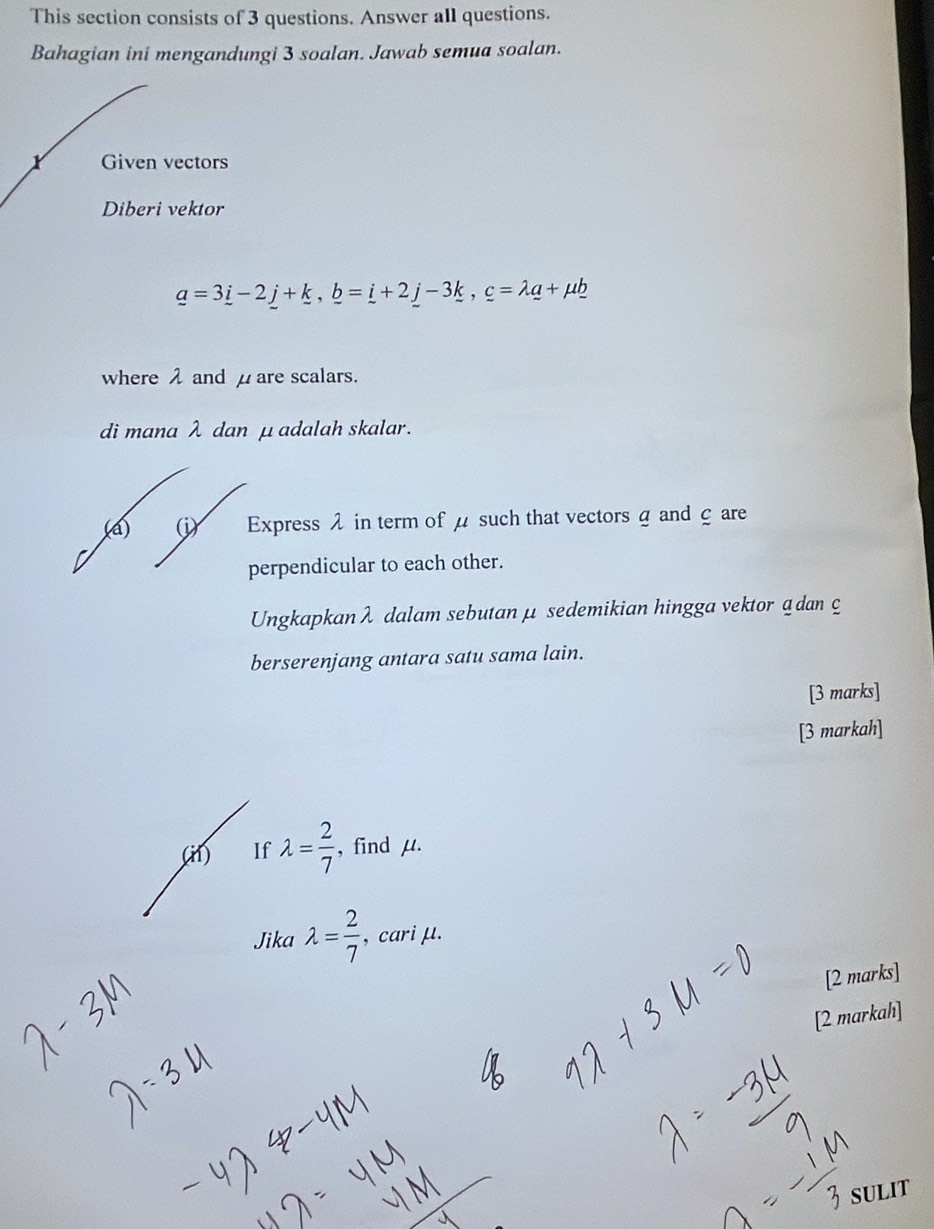 This section consists of 3 questions. Answer all questions.
Bahagian ini mengandungi 3 soalan. Jawab semua soalan.
1 Given vectors
Diberi vektor
a = 3i − 2j + k , b = i + 2j − 3k , c = λa + μb
where λ and μ are scalars.
di mana λ dan μ adalah skalar.
(a) (i) Express λ in term of μ such that vectors a and c are
perpendicular to each other.
Ungkapkan λ dalam sebutan μ sedemikian hingga vektor a dan c
berserenjang antara satu sama lain.
[3 marks]
[3 markah]
(ii) If λ = 2/7, find μ.
Jika λ = 2/7, cari μ.
[2 marks]
[2 markah]
λ - 3M
λ = 3M
9λ + 3M = 0
λ = -3M/9
-4λ -4M
4λ = 4M
4M
λ = -1M/3
SULIT